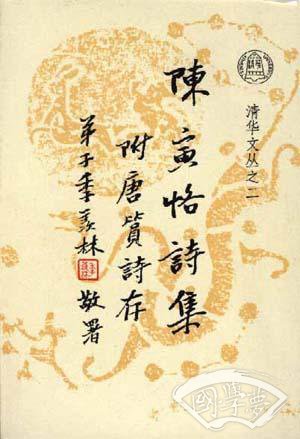 清华文丛之二
陳寅恪詩集
附唐篔詩存
弟子季羨林
敬署
國學夢